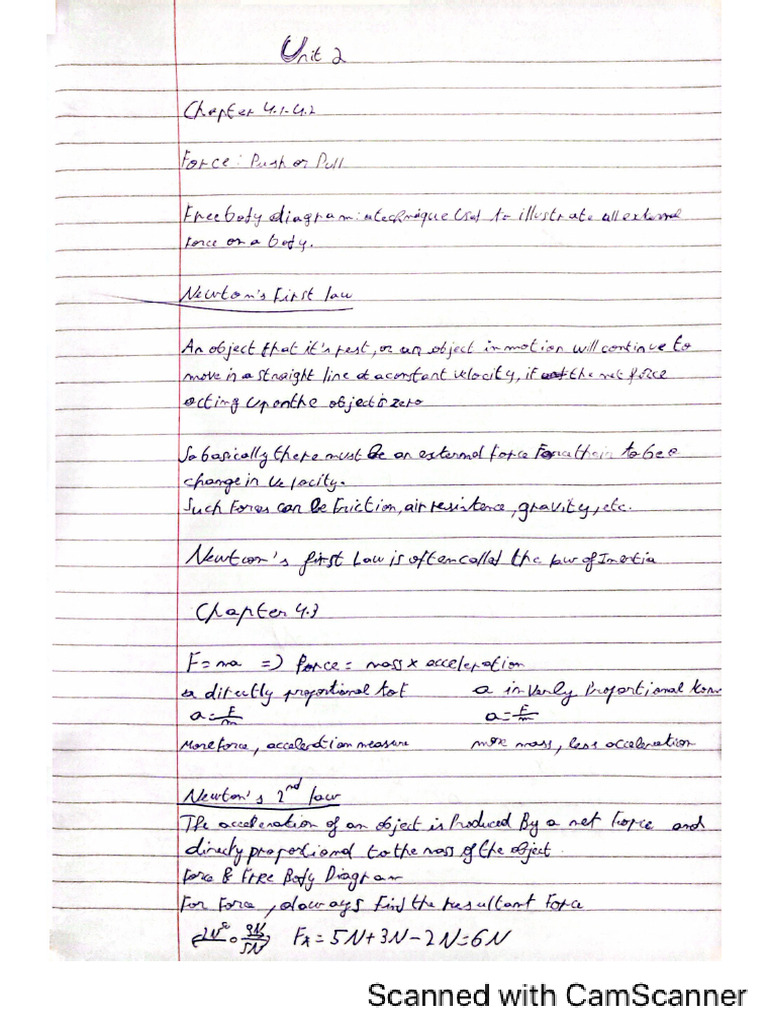 Unit 2
Chapter 4.1-4.2
Force: Push or Pull
Free body diagram: a technique used to illustrate all external
Force on a body.
Newton's First law
An object that it's rest, or an object in motion will continue to
move in a straight line at a constant velocity, if the net force
acting upon the object is zero
So basically there must be an external force to be a
change in velocity.
Such Forces can be friction, air resistence, gravity, etc.
Newton's first Law is often called the law of Inertia
Chapter 4.3
F = ma => Force = mass x acceleration
a directly proportional to f a inversly Proportional to m
a = F/m a = F/m
More force, acceleration measure more mass, less acceleration
Newton's 2nd law
The acceleration of an object is Produced By a net Force and
directly proportional to the mass of the object.
Force & Free Body Diagram
For Force, always find the resultant Force
2N 3N 5N Fx = 5N+3N-2N=6N
Scanned with CamScanner